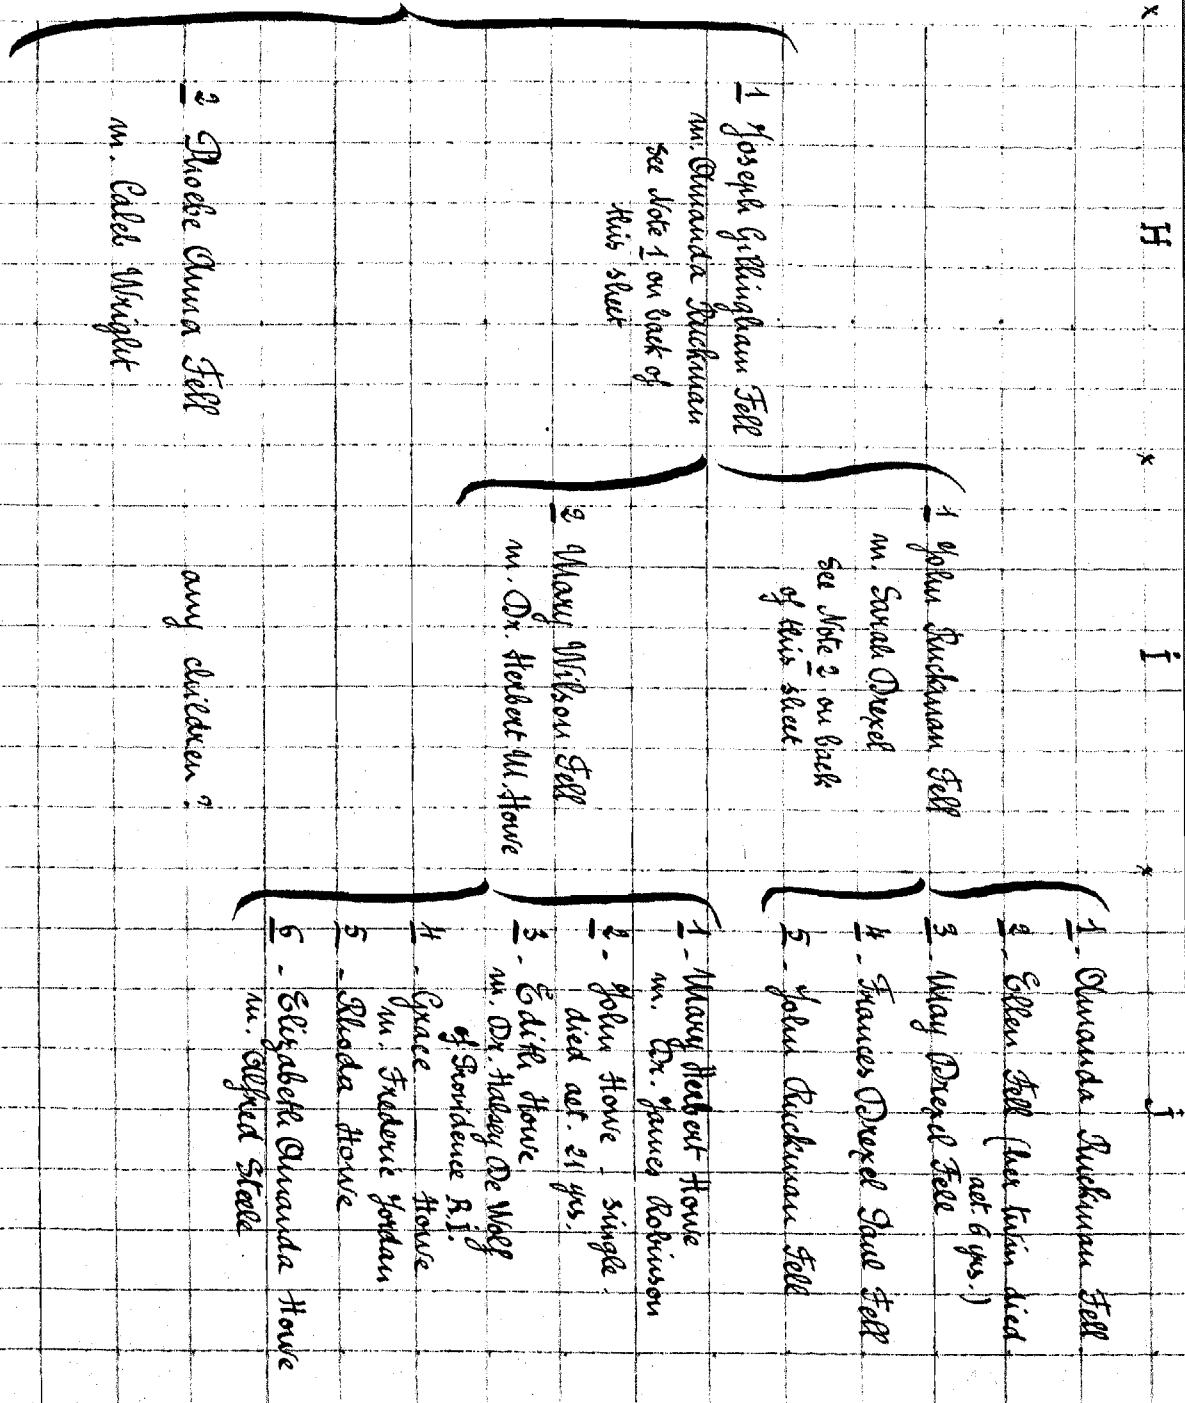 x H x I x J
1 Joseph Gillingham Fell
m. Amanda Ruckman
see Note 1 on back of
this sheet
2 Phoebe Anna Fell
m. Caleb Wright
1 John Ruckman Fell
m. Sarah Drexel
see Note 2 on back
of this sheet
2 Mary Wilson Fell
m. Dr. Herbert M. Howe
any children?
1 - Amanda Ruckman Fell
2 - Ellen Fell (her twin died
aet 6 yrs.)
3 - May Drexel Fell
4 - Frances Drexel Paul Fell
5 - John Ruckman Fell
1 - Mary Herbert Howe
m. Dr. James Robinson
2 - John Howe - single.
died aet. 21 yrs.
3 - Edith Howe
m. Dr. Halsey De Wolf
of Providence R.I.
4 - Grace Howe
m. Frederic Jordan
5 - Rhoda Howe
6 - Elizabeth Amanda Howe
m. Alfred Steele